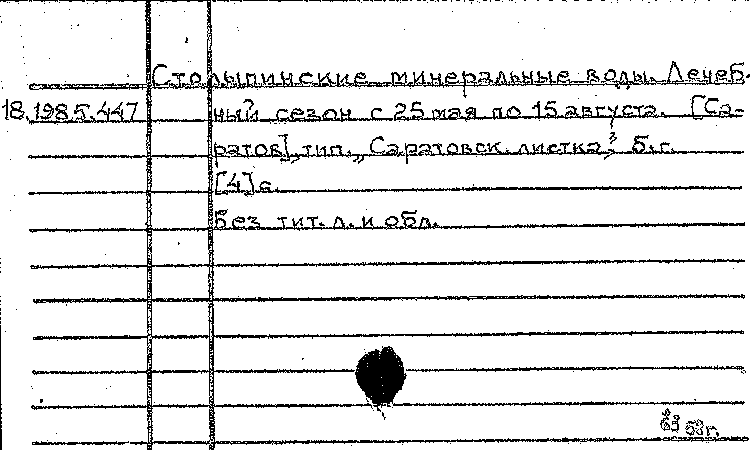 Столыпинские минеральные воды. Лечеб-
18.1985.447 ный сезон с 25 мая по 15 августа. [Са-
ратов], тип. „Саратовск. листка", б. г.
[4] с.
Без тит. л. и обл.